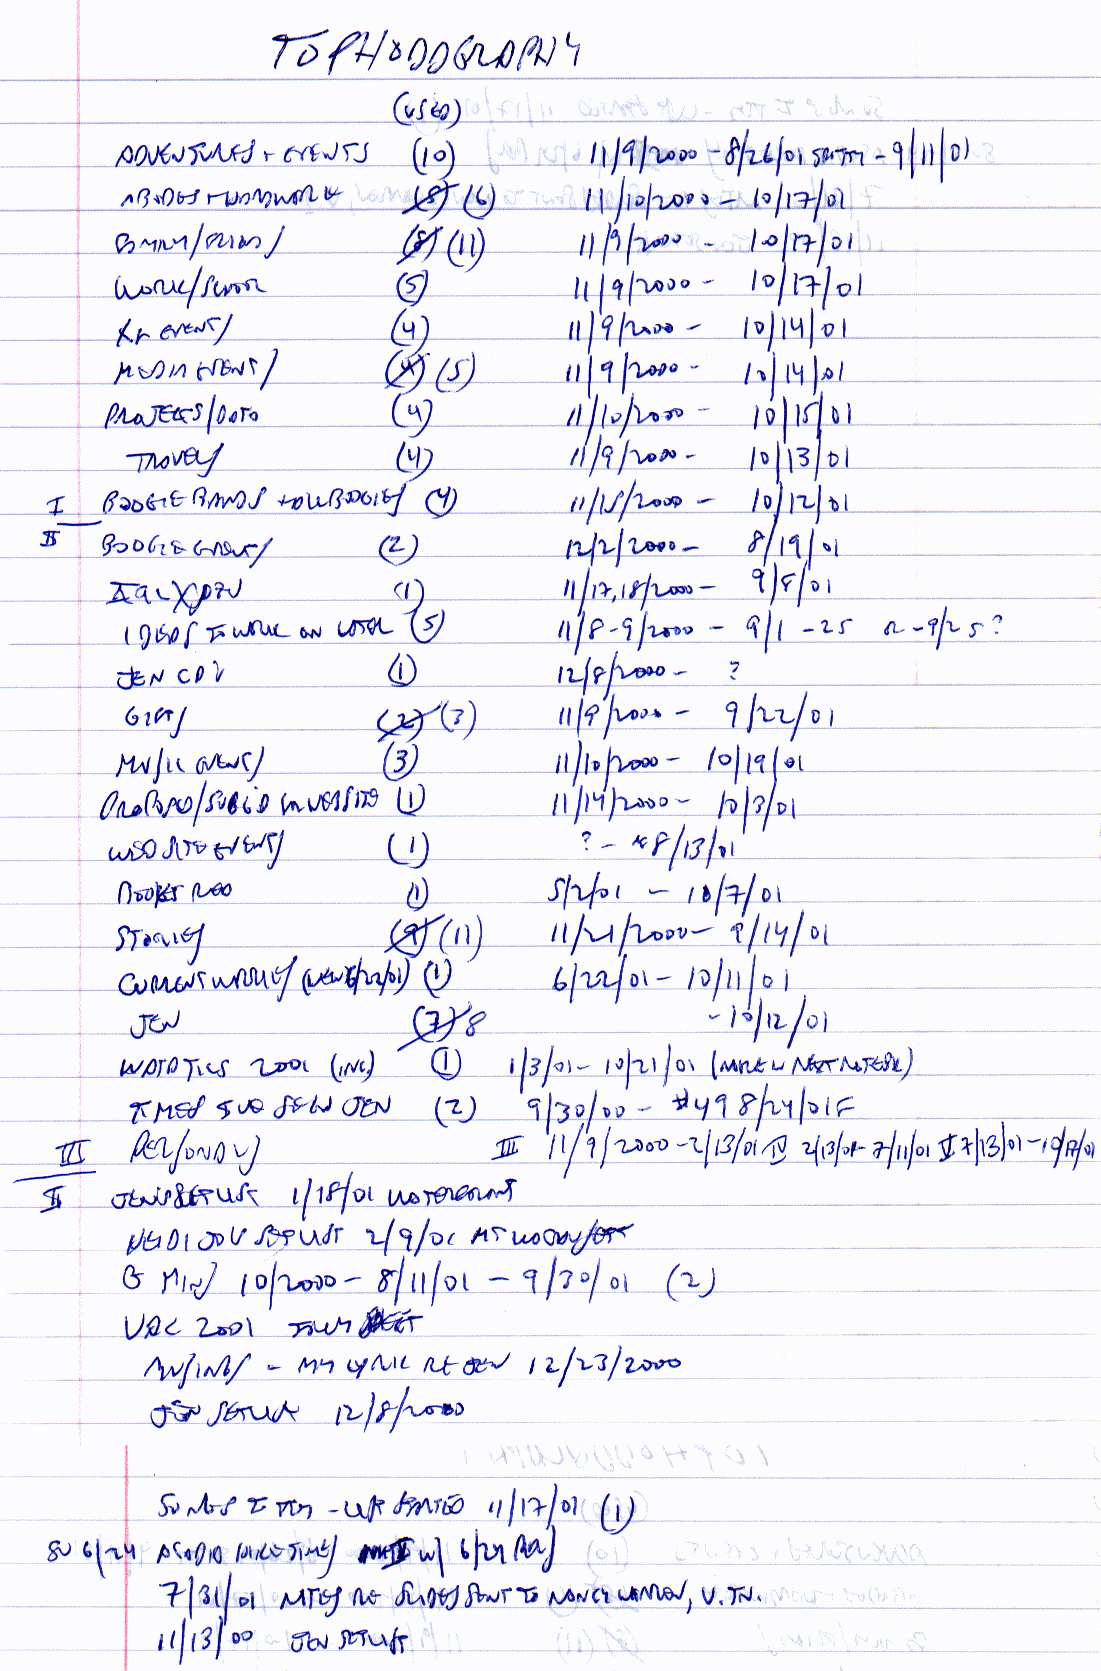 TOPHODOGRAPHY
(USED)
ADVENTURES + EVENTS (10) 11/9/2000 - 8/26/01 - 9/11/01
ABODES + (8) (6) 11/10/2000 - 10/17/01
(8) (11) 11/9/2000 - 10/17/01
WORK/SCHOOL (5) 11/9/2000 - 10/17/01
EVENTS (4) 11/9/2000 - 10/14/01
MEDIA EVENTS (4) (5) 11/9/2000 - 10/14/01
PROJECTS/DOTO (4) 11/10/2000 - 10/15/01
TRAVELS (4) 11/9/2000 - 10/13/01
I BOOGIE BANDS + BOOGIES (4) 11/15/2000 - 10/12/01
II BOOGIE EVENTS (2) 12/2/2000 - 8/19/01
(1) 11/17,18/2000 - 9/8/01
IDEAS TO WORK ON LATER (5) 11/8-9/2000 - 9/1 - 25 or - 9/25?
JEN CD'S (1) 12/8/2000 - ?
GIFTS (2) (3) 11/9/2000 - 9/22/01
MUSIC EVENTS (3) 11/10/2000 - 10/19/01
(1) 11/14/2000 - 10/3/01
WEBSITE EVENTS (1) ? - *8/13/01
BOOKS READ (1) 5/2/01 - 10/7/01
STORIES (9) (11) 11/21/2000 - 9/14/01
CURRENT WORKS (NEW 6/22/01) (1) 6/22/01 - 10/11/01
JEN (7) 8 - 10/12/01
2001 (INC) (1) 1/3/01 - 10/21/01 (MORE IN NEXT NOTEBK)
TIMES I'VE SEEN JEN (2) 9/30/00 - #49 8/24/01 F
III PERSONALS III 11/9/2000 - 2/13/01 IV 2/13/01 - 7/11/01 V 7/13/01 - 10/17/01
II JEN SETLIST 1/18/01 WATERFRONT
SETLIST 2/9/01
G MINS 10/2000 - 8/11/01 - 9/30/01 (2)
VAC 2001
MUSINGS - MY LYRIC RE JEN 12/23/2000
JEN SETLIST 12/8/2000
SONGS - STARTED 11/17/01 (1)
SU 6/24 ACADIA HIKE TIMES W/ 6/24
7/31/01 NOTES RE SLIDES SENT TO NANCY
11/13/00 JEN SETLIST